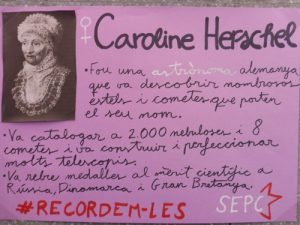 ♀ Caroline Herschel
• Fou una astrònoma alemanya
que va descobrir nombrosos
estels i cometes que porten
el seu nom.
• Va catalogar a 2.000 nebuloses i 8
cometes i va construir i perfeccionar
molts telescopis.
• Va rebre medalles al mèrit científic a
Rússia, Dinamarca i Gran Bretanya.
#RECORDEM-LES SEPC